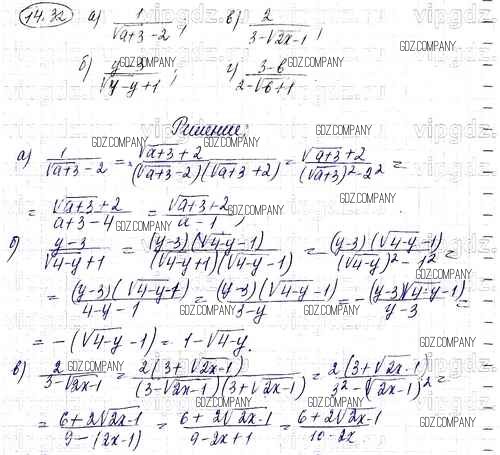 14.32 а) 1/(√(a+3) - 2); в) 2/(3-√(2x-1));
б) (y-3)/(√(4-y)+1); г) (3-b)/(2-√(b+1))
Решение:
а) 1/(√(a+3) - 2) = (√(a+3) + 2)/((√(a+3) - 2)(√(a+3) + 2)) = (√(a+3) + 2)/((√(a+3))² - 2²) =
= (√(a+3) + 2)/(a+3-4) = (√(a+3) + 2)/(a-1);
б) (y-3)/(√(4-y)+1) = (y-3)(√(4-y)-1)/((√(4-y)+1)(√(4-y)-1)) = (y-3)(√(4-y)-1)/((√(4-y))² - 1²) =
= (y-3)(√(4-y)-1)/(4-y-1) = (y-3)(√(4-y)-1)/(3-y) = - (y-3)(√(4-y)-1)/(y-3) =
= -(√(4-y) - 1) = 1-√(4-y).
в) 2/(3-√(2x-1)) = 2(3+√(2x-1))/((3-√(2x-1))(3+√(2x-1))) = 2(3+√(2x-1))/(3² - (√(2x-1))²) =
= (6+2√(2x-1))/(9-(2x-1)) = (6+2√(2x-1))/(9-2x+1) = (6+2√(2x-1))/(10-2x)
GDZ.COMPANY
vipgdz